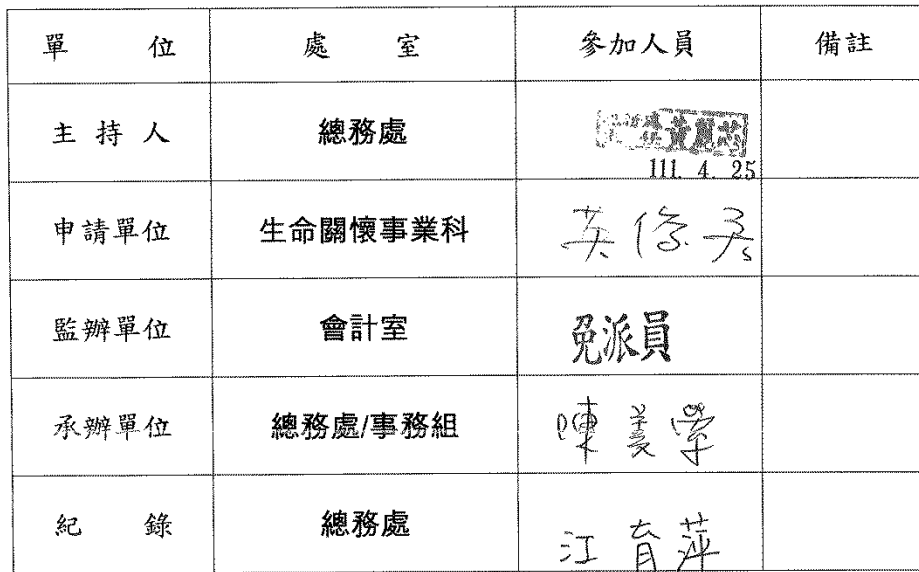 單 位 處 室 參加人員 備註
主 持 人 總務處 黃麗芯
111. 4. 25
申請單位 生命關懷事業科 英俊
監辦單位 會計室 免派員
承辦單位 總務處/事務組 陳美
紀 錄 總務處 江育萍